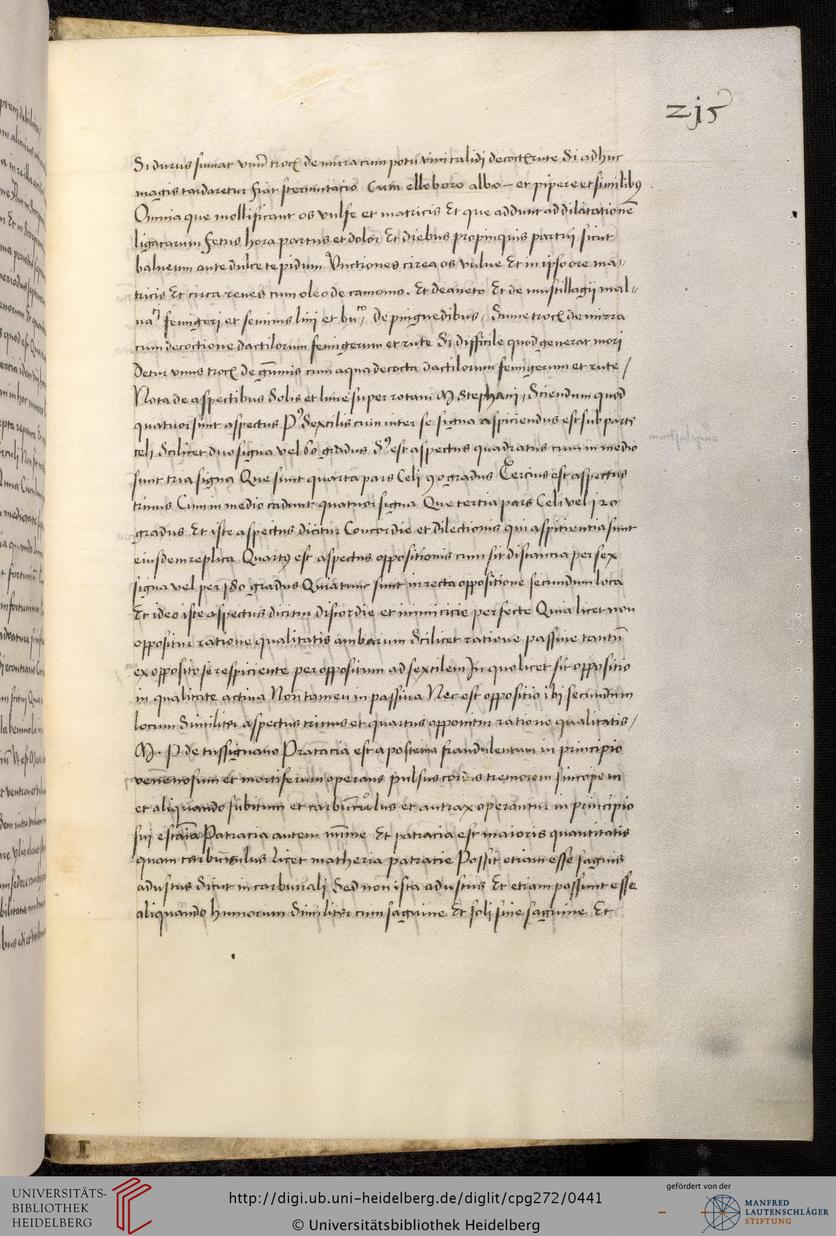 zj5
Si durus sumat vnum troc de mirra cum potu vini calidi decoct rute Si adhuc
magis tardaretur fiat sternutacio Cum elleboro albo et pipere et similibus
Omnia que mollificant os vulfe et matricis Et que addunt ad dilatationem
ligatarum fetus hora partus et dolor Et diebus propinquis partui sicut
balneum ante dulce tepidum Vnctiones circa os vulue Et in ipso ore ma
tricis Et circa renes cum oleo de camomi. Et de aneto Et de mussillagii mal
ua fenigreci et seminis lini et de pinguedibus troc de mirra
cum decoctione dactilorum fenigrecum et rute Si difficile quod generat mori
Detur vnus troc de gummis cum aqua decocta dactilorum fenigrecum et rute /
Nota de aspectibus Solis et lune super rotam M. Stephani, dicendum quod
quatuor sunt aspectus P9 Sextilis cum inter se signa aspiciendus est sub parte
celi Scilicet duo signa vel 60 gradus est aspectus quadratus cum in medio
sunt tria signa Que sunt quarta pars Celi 90 gradus Tercius est aspectus
trinus Cum in medio cadunt quatuor signa Que tertia pars Celi vel 120
gradus Et iste aspectus dicitur Concordie et dilectionis qui aspitientia sunt
eiusdem replica Quartus est aspectus oppositionis cum sit distancia per sex
signa vel per 180 gradus Quia tunc sunt in recta oppositione secundum loca
Et ideo iste aspectus dicitur discordie et inimicicie perfecte Quia licet non
oppositur ratione qualitatis ambarum Scilicet ratione passiue tantum
ex opposito se respiciente per oppositum ad sextilem In quo licet sit oppositio
in qualitate actiua Non tamen in passiua Nec est oppositio ibi secundum
locum Similiter aspectus trinus et quartus opponitur ratione qualitatis /
M. P. de tussignano Pratacia est apostema fraudulentum in principio
venenosum et mortiferum operans pulsus cordis tremorem sincopem
et aliquando subitum et carbunculus et antrax operantur in principio
sui Patracia autem minime Et patracia est maioris quantitatis
quam carbunculus Licet matheria patratie Possit etiam esse sanguis
adustus Sicut in carbunculi Sed non ista adustus Et etiam possunt esse
aliquando humorum Similiter cum sanguine Et soli sine sanguine Et
UNIVERSITÄTS-
BIBLIOTHEK
HEIDELBERG
http://digi.ub.uni-heidelberg.de/diglit/cpg272/0441
© Universitätsbibliothek Heidelberg
gefördert von der
MANFRED
LAUTENSCHLÄGER
STIFTUNG